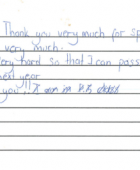 Thank you very much for
very much.
very hard so that I can pass
next year
you!! I am in